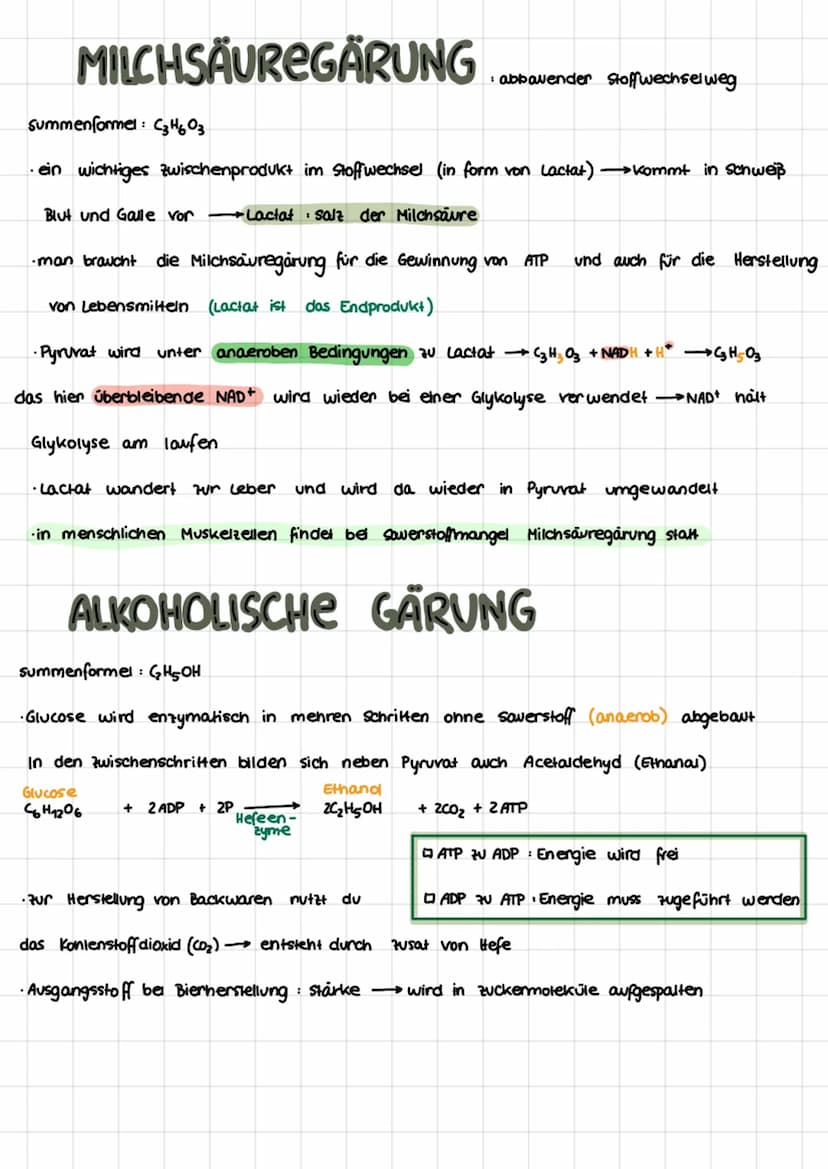 MILCHSÄUREGÄRUNG : abbauender Stoffwechselweg
Summenformel : C₃H₆O₃
· ein wichtiges Zwischenprodukt im Stoffwechsel (in form von Lactat) → kommt in Schweiß
Blut und Galle vor → Lactat : Salz der Milchsäure
· man braucht die Milchsäuregärung für die Gewinnung von ATP und auch für die Herstellung
von Lebensmitteln (Lactat ist das Endprodukt)
· Pyruvat wird unter anaeroben Bedingungen zu Lactat → C₃H₃O₃ + NADH + H⁺ → C₃H₅O₃
das hier überbleibende NAD⁺ wird wieder bei einer Glykolyse verwendet → NAD⁺ hält
Glykolyse am laufen
· Lactat wandert zur Leber und wird da wieder in Pyruvat umgewandelt
· in menschlichen Muskelzellen findet bei Sauerstoffmangel Milchsäuregärung statt
ALKOHOLISCHE GÄRUNG
Summenformel : C₂H₅OH
· Glucose wird enzymatisch in mehren Schritten ohne Sauerstoff (anaerob) abgebaut
In den Zwischenschritten bilden sich neben Pyruvat auch Acetaldehyd (Ethanal)
Glucose Ethanol
C₆H₁₂O₆ + 2 ADP + 2P → 2C₂H₅OH + 2CO₂ + 2 ATP
Hefeen-
zyme
ATP zu ADP : Energie wird frei
ADP zu ATP : Energie muss zugeführt werden
· zur Herstellung von Backwaren nutzt du
das Kohlenstoffdioxid (CO₂) → entsteht durch zusat von Hefe
· Ausgangsstoff bei Bierherstellung : Stärke → wird in Zuckermoleküle aufgespalten